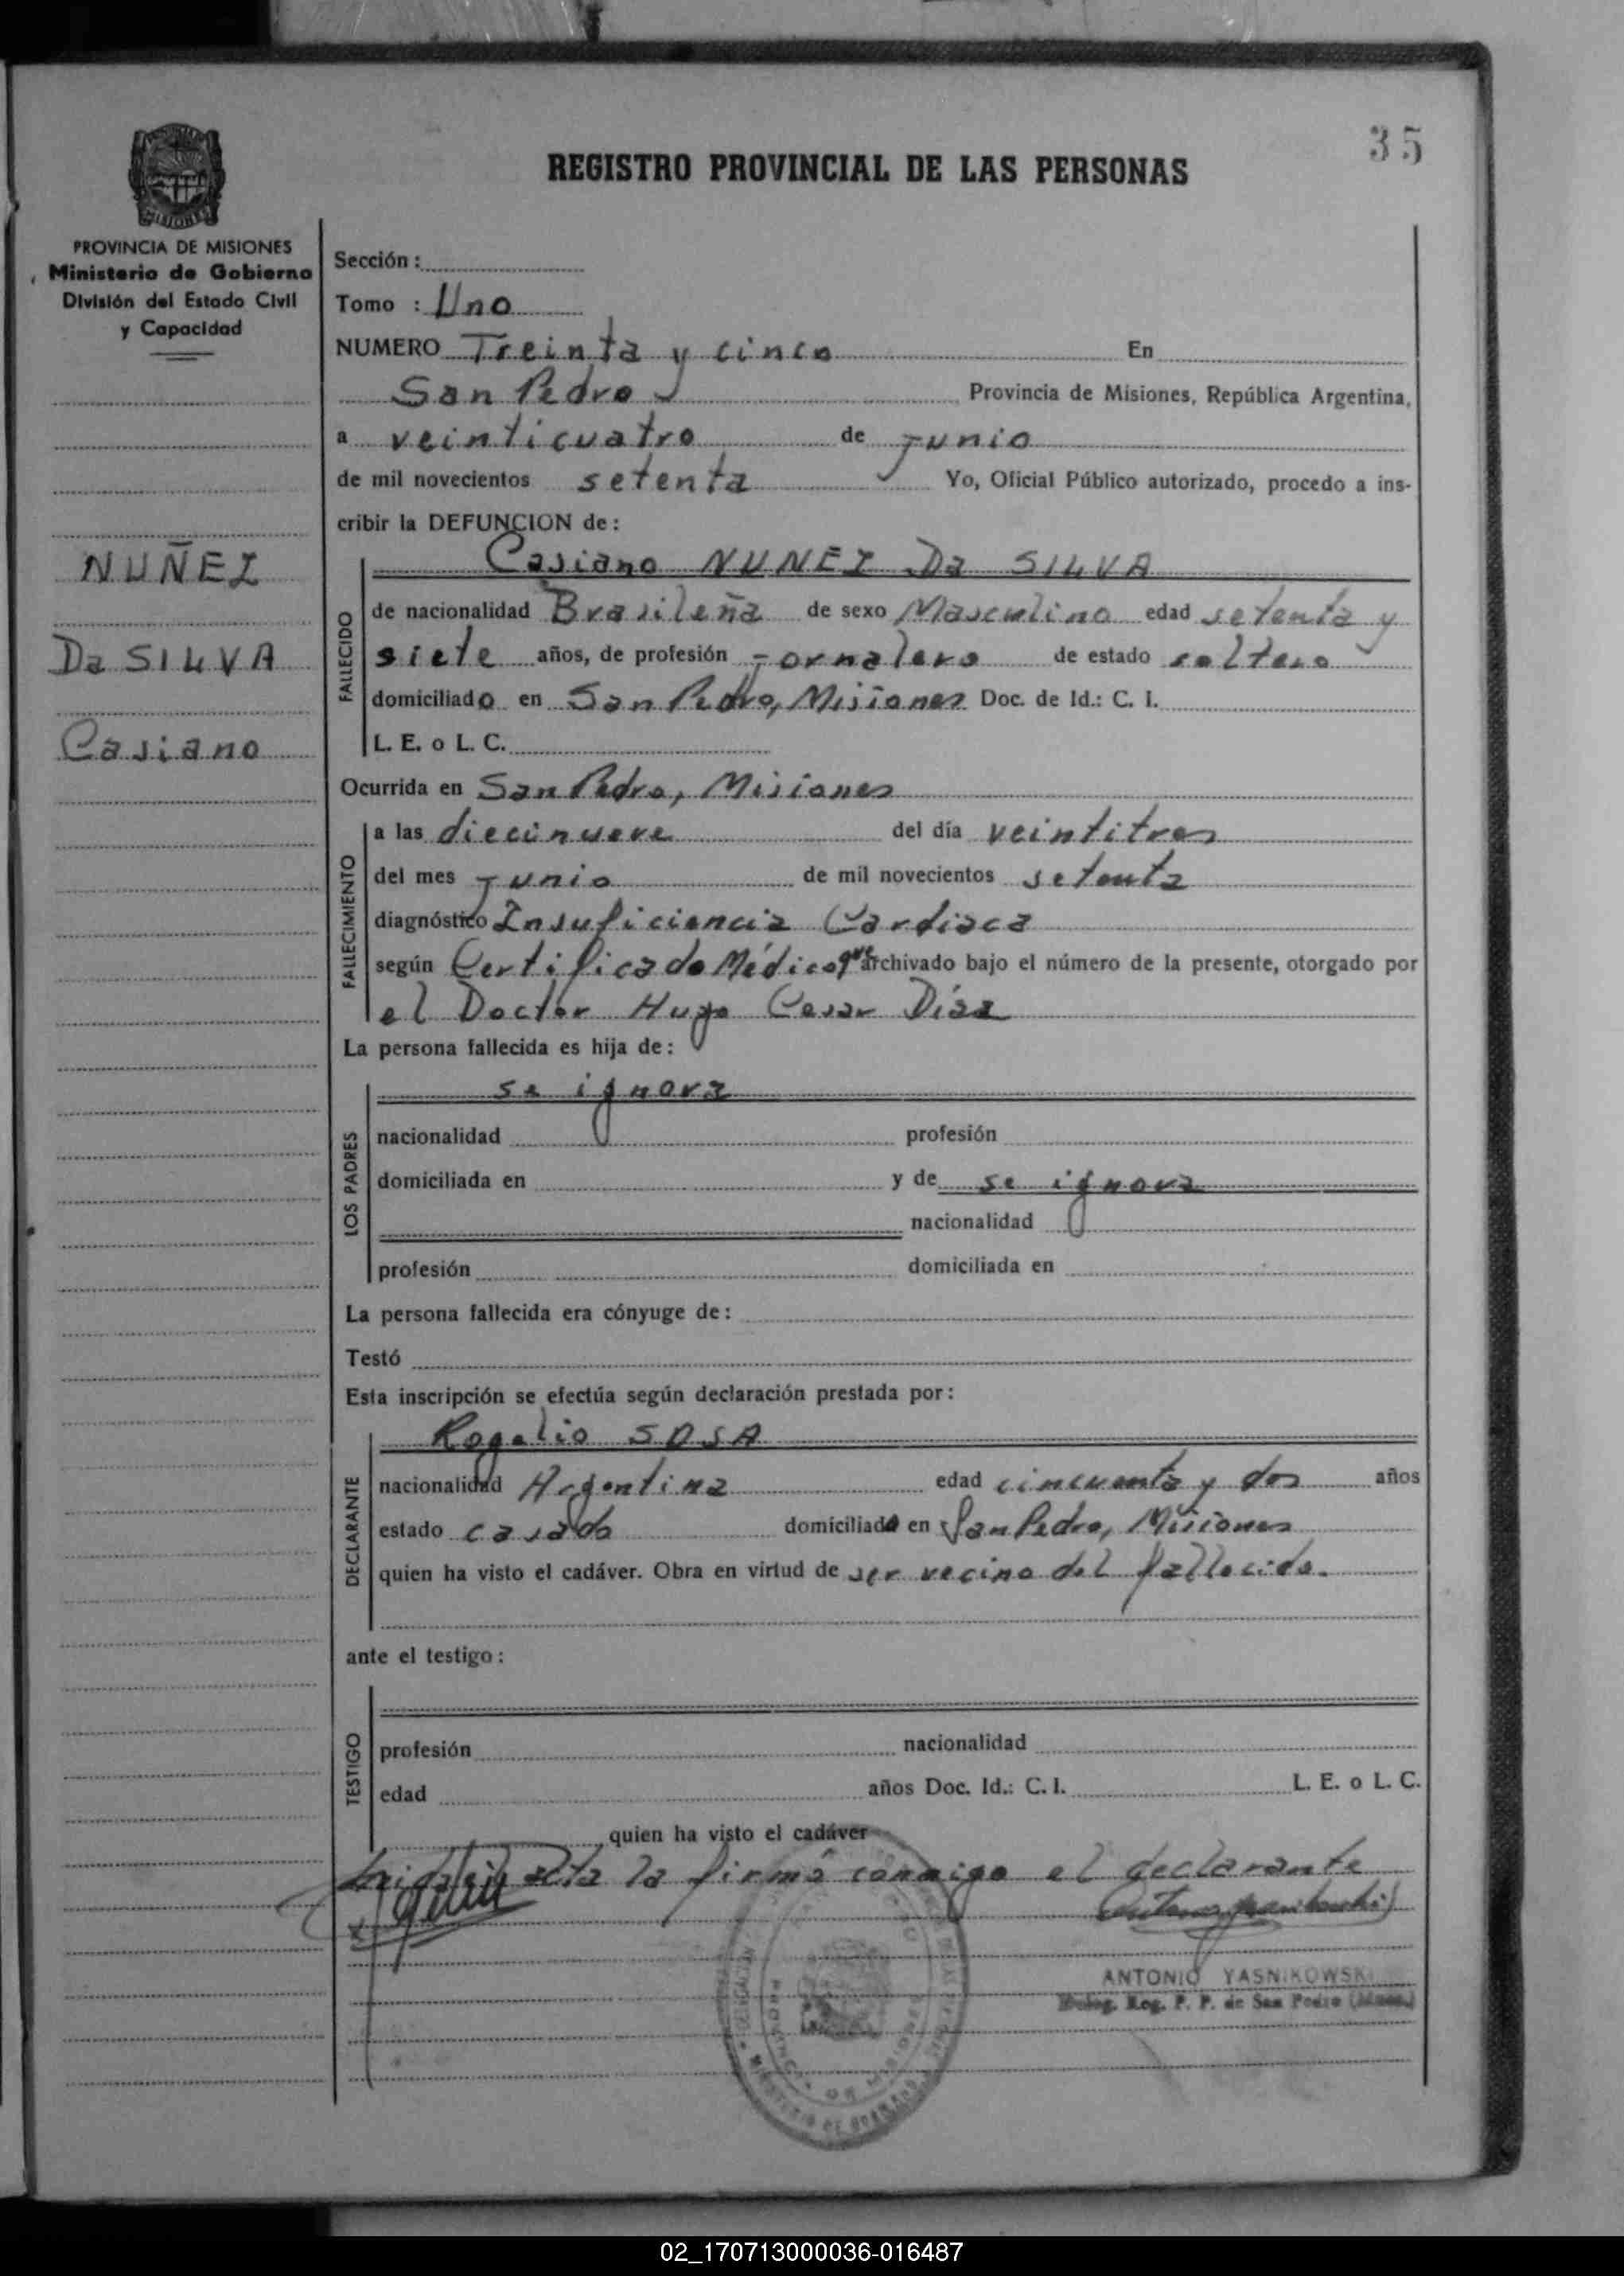 35
REGISTRO PROVINCIAL DE LAS PERSONAS
MISIONES
PROVINCIA DE MISIONES
Ministerio de Gobierno
División del Estado Civil
y Capacidad
NUÑEZ
Da SILVA
Casiano
Sección :
Tomo : Uno
NUMERO Treinta y cinco En
San Pedro Provincia de Misiones, República Argentina,
a veinticuatro de junio
de mil novecientos setenta Yo, Oficial Público autorizado, procedo a ins-
cribir la DEFUNCION de :
Casiano NUÑEZ Da SILVA
FALLECIDO
de nacionalidad Brasileña de sexo Masculino edad setenta y
siete años, de profesión Jornalero de estado soltero
domiciliado en San Pedro, Misiones Doc. de Id.: C. I.
L. E. o L. C.
Ocurrida en San Pedro, Misiones
FALLECIMIENTO
a las diecinueve del día veintitres
del mes junio de mil novecientos setenta
diagnóstico Insuficiencia Cardiaca
según Certificado Médico que archivado bajo el número de la presente, otorgado por
el Doctor Hugo Cesar Díaz
La persona fallecida es hija de :
LOS PADRES
se ignora
nacionalidad profesión
domiciliada en y de se ignora
nacionalidad
profesión domiciliada en
La persona fallecida era cónyuge de :
Testó
Esta inscripción se efectúa según declaración prestada por :
DECLARANTE
Rogelio SOSA
nacionalidad Argentina edad cincuenta y dos años
estado casado domiciliado en San Pedro, Misiones
quien ha visto el cadáver. Obra en virtud de ser vecino del fallecido.
ante el testigo :
TESTIGO
profesión nacionalidad
edad años Doc. Id.: C. I. L. E. o L. C.
quien ha visto el cadáver
acta la firmó conmigo el declarante
ANTONIO YASNIKOWSKI
Reg. P. P. de San Pedro (Mnes.)
02_170713000036-016487